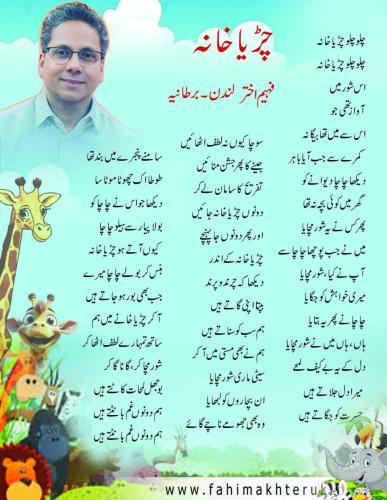 چڑیا خانہ
فہیم اختر لندن۔ برطانیہ
چلو چلو چڑیا خانہ
چلو چلو چڑیا خانہ
اس شور میں
آواز تھی جو
اس سے میں تھا بیگانہ
کمرے سے جب آیا باہر
دیکھا چاچا دیوانے کو
گھر میں کوئی بچہ نہ تھا
پھر کس نے یہ شور مچایا
میں نے جب پوچھا چاچا سے
آپ نے کیا، شور مچایا
میری خواہش کو جگایا
چاچانے پھر یہ بتایا
ہاں، ہاں میں نے شور مچایا
دل کے یہ بے کیف لمحے
میرا دل جلاتے ہیں
حسرت کو جگاتے ہیں
سوچا کیوں نہ لطف اٹھائیں
جینے کا پھر جشن منائیں
تفریح کا سامان لے کر
دونوں چڑیا خانہ جائیں
اور پھر دونوں جا پہنچے
چڑیا خانہ کے اندر
دیکھا کہ چرند و پرند
بیتا اپنی گاتے ہیں
ہم سب کو سناتے ہیں
ہم نے بھی مستی میں آکر
سیٹی ماری شور مچایا
ان بیچاروں کو لبھایا
وہ بھی جھومے ناچے گائے
سامنے پنجرے میں بند تھا
طوطا اک چھوٹا موٹا سا
دیکھا جو اس نے چاچا کو
بولا پیار سے ہیلو چاچا
کیوں آتے ہو چڑیا خانہ
ہنس کر بولے چاچا میرے
جب بھی بور ہو جاتے ہیں
آکر چڑیا خانے میں ہم
ساتھ تمہارے لطف اٹھا کر
شور مچا کر، گانا گا کر
بوجھل لمحات کاٹتے ہیں
ہم دونوں غم بانٹتے ہیں
ہم دونوں غم بانٹتے ہیں